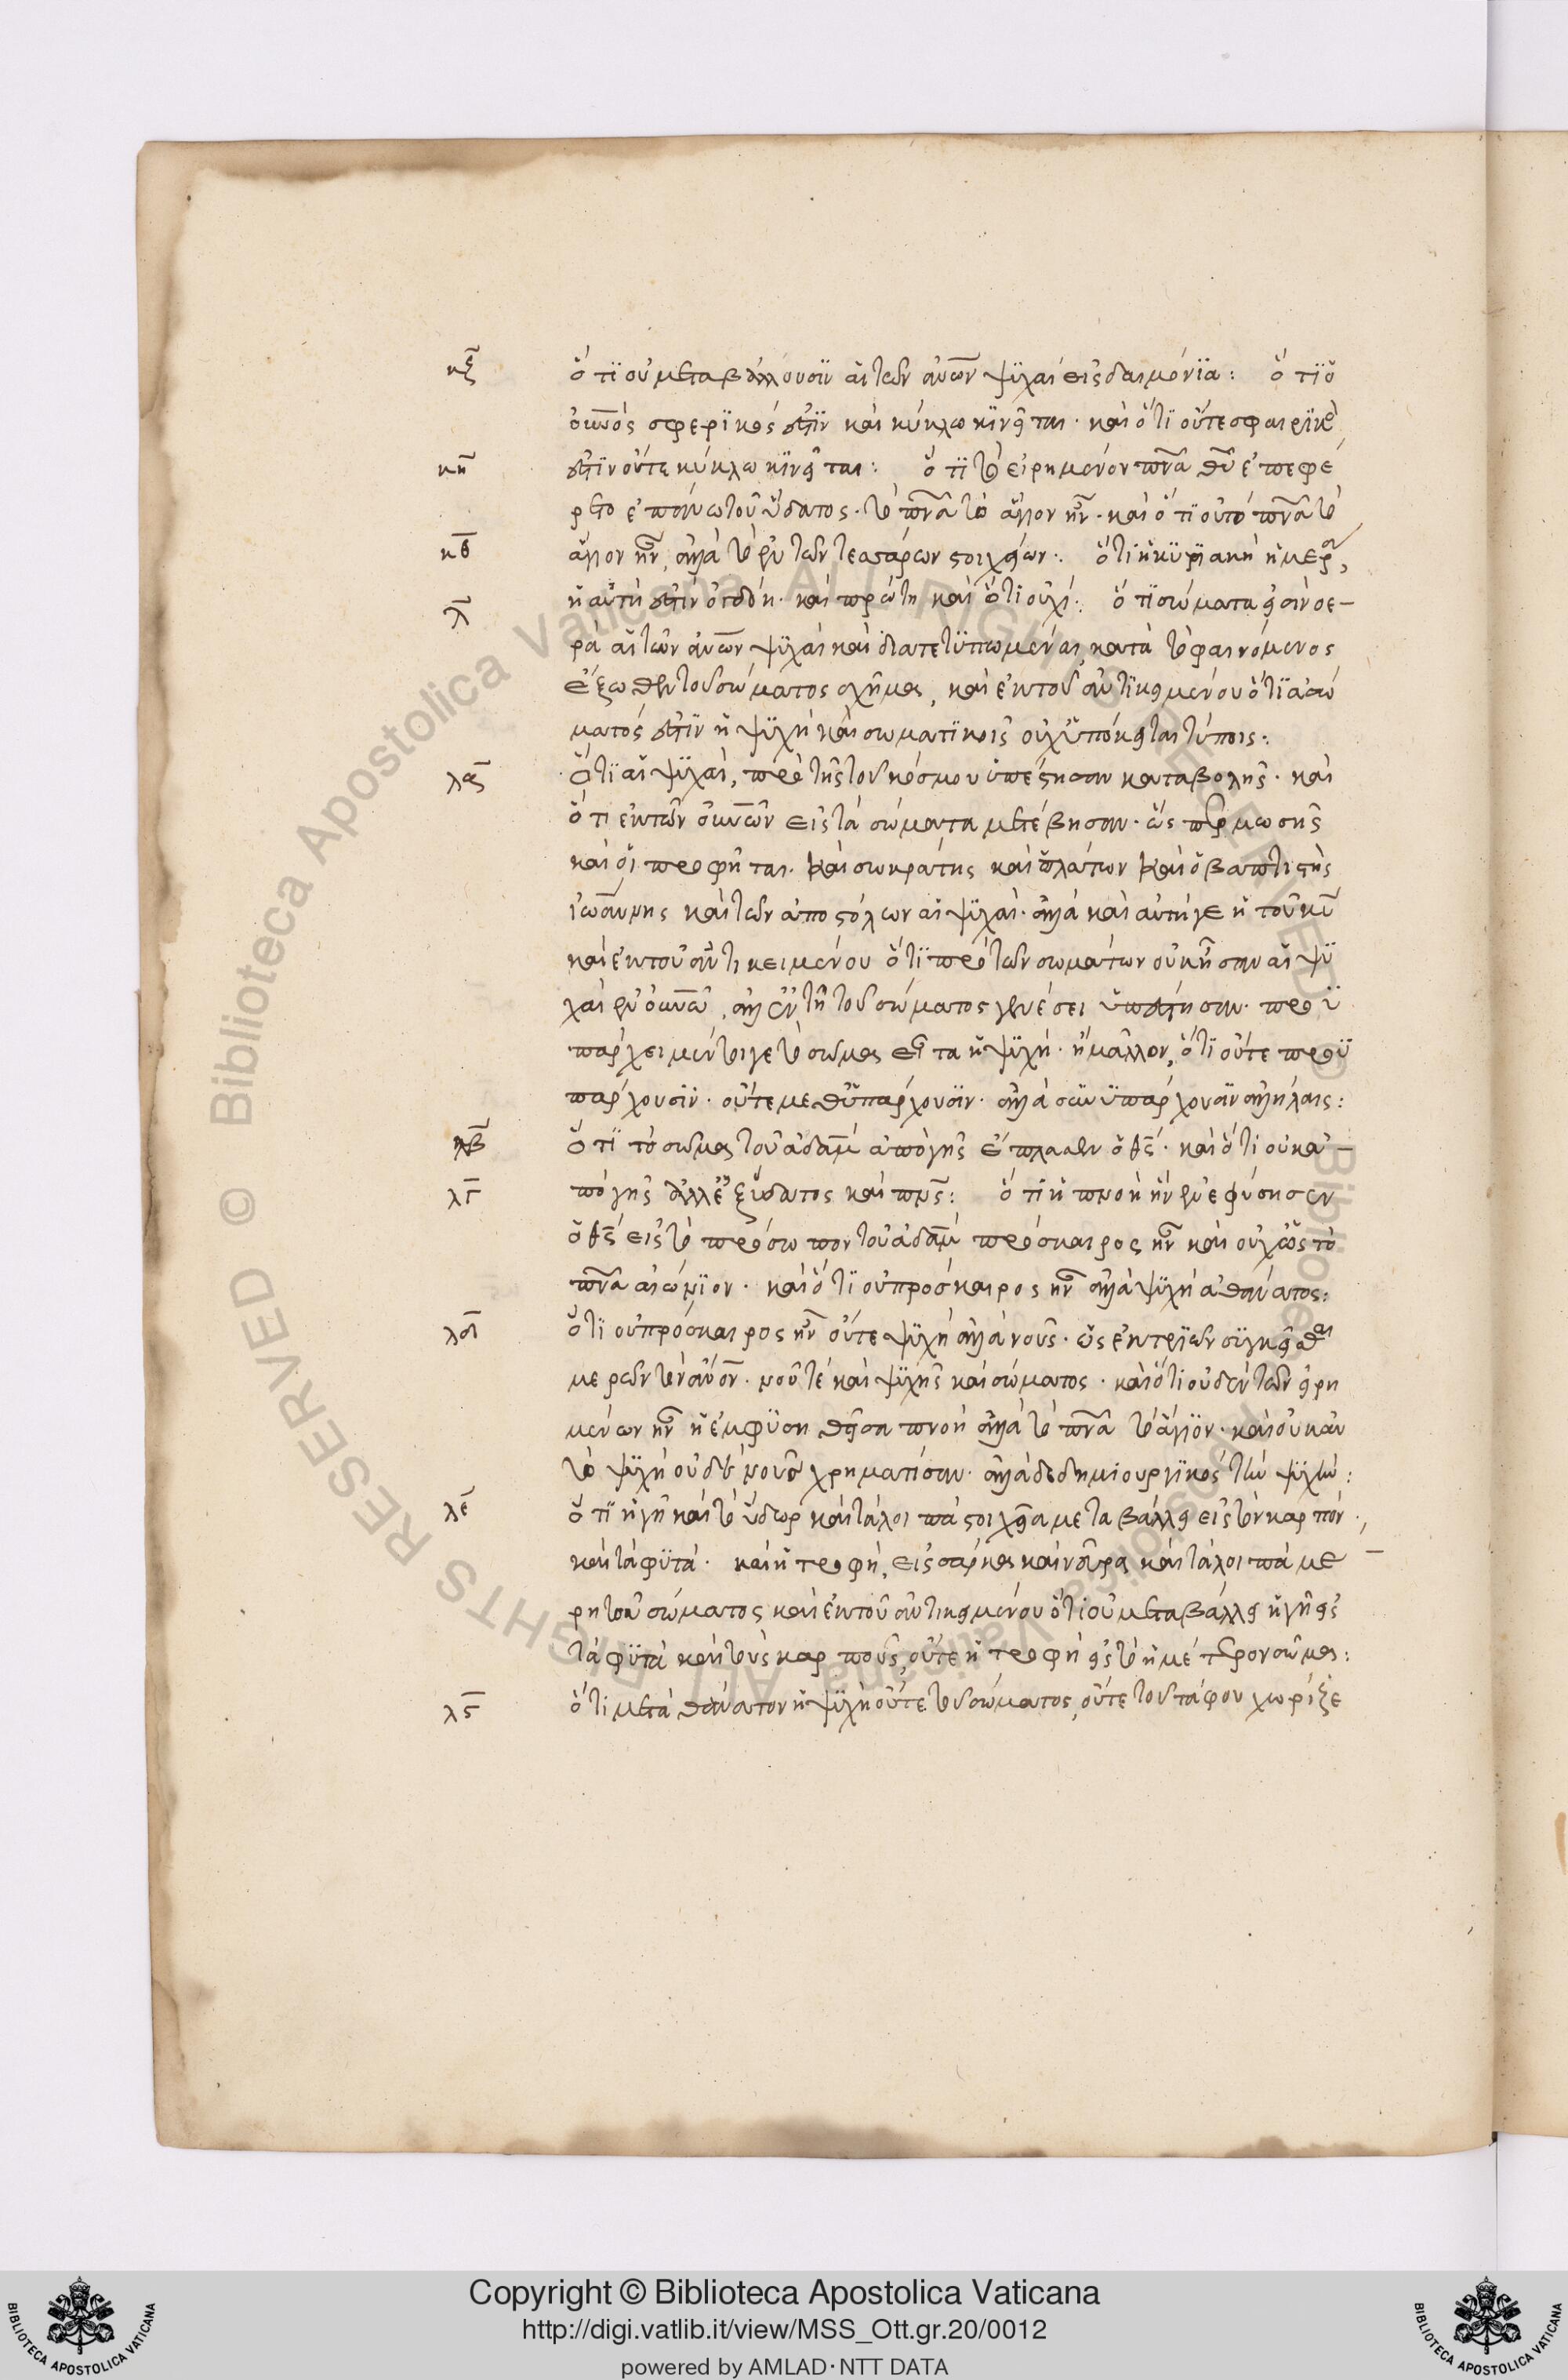 κζ ὅτι οὐ μεταβάλλουσιν αἱ τῶν ἀνων ψυχαὶ εἰς δαιμόνια: ὅτι ὁ
οὐνος σφερικός ἐστιν καὶ κύκλω κινεῖται· καὶ ὅτι οὔτε σφαιρικὸ
κη ἐστιν οὔτε κύκλω κινεῖται: ὅτι τὸ εἰρημένον πνα θυ ἐπεφέ
ρετο ἐπάνω τοῦ ὕδατος· τὸ πνα τὸ ἅγιον ἦν· καὶ ὅτι οὐ τὸ πνα τὸ
κθ ἅγιον ἦν, ἀλλὰ τὸ ἐκ τῶν τεσσάρων στοιχείων: ὅτι ἡ κυριακὴ ἡμέρα,
λ ἡ αὐτή ἐστιν ὀγδόη· καὶ πρώτη καὶ ὅτι οὐχί: ὅτι σώματα εἰσὶν
ρὰ αἱ τῶν ἀνων ψυχαὶ καὶ διατετυπωμέναι, κατὰ τὸ φαινόμενος
ἔξωθεν τοῦ σώματος σχῆμα, καὶ ἐκ τοῦ ἀντικειμένου ὅτι ἀσώ
ματός ἐστιν ἡ ψυχὴ καὶ σωματικοῖς οὐχ ὑπόκειται τύποις:
λα ὅτι αἱ ψυχαὶ, πρὸ τῆς τοῦ κόσμου ὑπέστησαν καταβολῆς· καὶ
ὅτι ἐκ τῶν οὐνων εἰς τὰ σώματα μετέβησαν· ὥσπερ μωσῆς
καὶ οἱ προφῆται· καὶ σωκράτης καὶ πλάτων καὶ ὁ βαπτιστὴς
ἰωάννης καὶ τῶν ἀποστόλων αἱ ψυχαὶ· ἀλλὰ καὶ αὐτή γε ἡ τοῦ κυ
καὶ ἐκ τοῦ ἀντικειμένου ὅτι πρὸ τῶν σωμάτων οὐκ ἦσαν αἱ ψυ
χαὶ ἐν οὐνω, ἀλλ' ἐν τῇ τοῦ σώματος γενέσει ὑπέστησαν· προϋ
πάρχει μέν τοι γε τὸ σῶμα εἶτα ἡ ψυχή· ἢ μᾶλλον, ὅτι οὔτε προϋ
πάρχουσιν· οὔτε μεθυπάρχουσιν· ἀλλὰ συνυπάρχουσιν ἀλλήλαις:
λβ ὅτι τὸ σῶμα τοῦ ἀδαμ ἀπὸ γῆς ἔπλασεν ὁ θς· καὶ ὅτι οὐκ ἀ
λγ πὸ γῆς ἀλλ' ἐξ ὕδατος καὶ πυρς: ὅτι ἡ πνοὴ ἣν ἐνεφύσησεν
ὁ θς εἰς τὸ πρόσωπον τοῦ ἀδαμ πρόσκαιρος ἦν καὶ οὐχ ὡς τὸ
πνα αἰώνιον· καὶ ὅτι οὐ πρόσκαιρος ἦν ἀλλὰ ψυχὴ ἀθάνατος:
λδ ὅτι οὐ πρόσκαιρος ἦν οὔτε ψυχὴ ἀλλὰ νοῦς· ὡς ἐκ τριῶν συγκεῖσθαι
μερῶν τὸν ἀνον· νοῦ τὲ καὶ ψυχῆς καὶ σώματος· καὶ ὅτι οὐδὲν τῶν εἰρη
μένων ἦν ἡ ἐμφυσηθεῖσα πνοὴ ἀλλὰ τὸ πνα τὸ ἅγιον· καὶ οὐκ ἂν
τὸ ψυχὴ οὐδὲ νοῦς χρηματίσαν· ἀλλὰ δεδημιουργικὸς τὴν ψυχήν:
λε ὅτι ἡ γῆ καὶ τὸ ὕδωρ καὶ τὰ λοιπὰ στοιχεῖα μεταβάλλει εἰς τὸν καρπόν
καὶ τὰ φυτά· καὶ ἡ τροφὴ, εἰς σάρκα καὶ νεῦρα καὶ τὰ λοιπὰ μέ
ρη τοῦ σώματος καὶ ἐκ τοῦ ἀντικειμένου ὅτι οὐ μεταβάλλει ἡ γῆ εἰς
τὰ φυτὰ καὶ τοὺς καρπούς, οὔτε ἡ τροφὴ εἰς τὸ ἡμέτερον σῶμα:
λς ὅτι μετὰ θάνατον ἡ ψυχὴ οὔτε τοῦ σώματος, οὔτε τοῦ τάφου χωρίζε
Copyright © Biblioteca Apostolica Vaticana
http://digi.vatlib.it/view/MSS_Ott.gr.20/0012
powered by AMLAD·NTT DATA
BIBLIOTECA APOSTOLICA VATICANA
BIBLIOTECA APOSTOLICA VATICANA